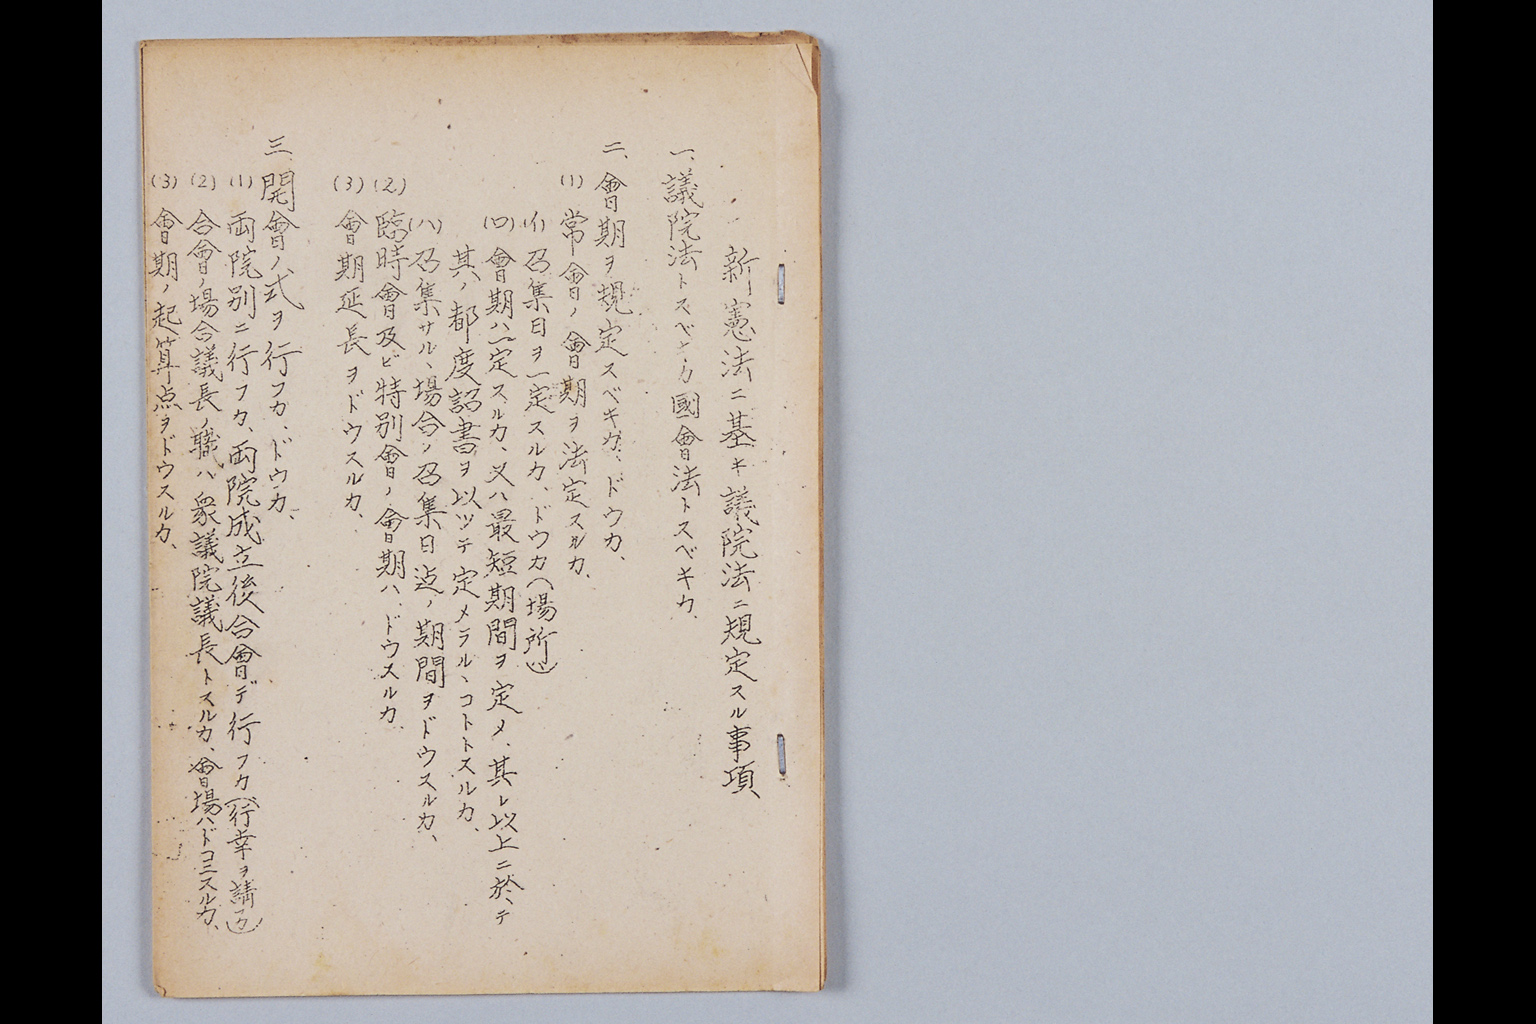 新憲法ニ基キ議院法ニ規定スル事項
一、議院法トスベキカ國會法トスベキカ、
二、會期ヲ規定スベキカ、ドウカ、
(1) 常會ノ會期ヲ法定スルカ、
(イ) 召集日ヲ一定スルカ、ドウカ(場所モ)
(ロ) 會期ハ一定スルカ、又ハ最短期間ヲ定メ、其レ以上ニ於テ
其ノ都度詔書ヲ以ツテ定メラルヽコトトスルカ、
(ハ) 召集サルヽ場合ノ召集日迄ノ期間ヲドウスルカ、
(2) 臨時會及ビ特別會ノ會期ハ、ドウスルカ
(3) 會期延長ヲドウスルカ、
三、開會ノ式ヲ行フカ、ドウカ、
(1) 両院別ニ行フカ、両院成立後合會デ行フカ(行幸ヲ請フ)
(2) 合會ノ場合議長ノ職ハ衆議院議長トスルカ、會場ハドコニスルカ、
(3) 會期ノ起算点ヲドウスルカ、